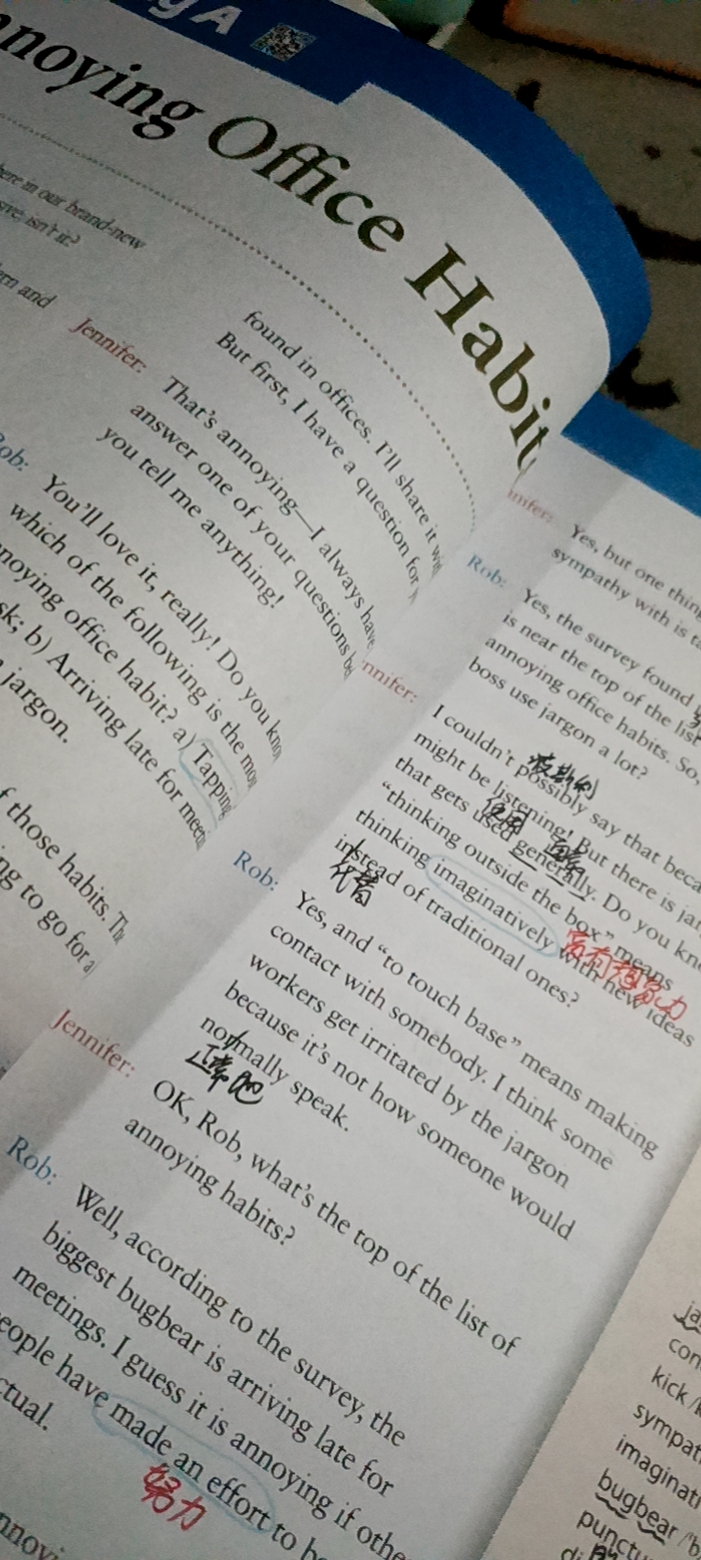 g A
nnoying Office Habit
here in our brand-new
isn't it?
and
found in offices. I'll share it
But first, I have a question for
Jennifer: That's annoying—I always have
answer one of your questions
you tell me anything!
Rob: You'll love it, really! Do you
which of the following is the
annoying office habit? a) Tapping
b) Arriving late for
jargon.
of those habits.
to go for a
Yes, but one thing
sympathy with is
Rob: Yes, the survey found
is near the top of the list
annoying office habits. So,
boss use jargon a lot?
I couldn't possibly say that
might be listening! But there is
that gets used generally. Do you
使用
"thinking outside the box" means
thinking imaginatively with new ideas
富有想象力
instead of traditional ones?
代替
Rob: Yes, and "to touch base" means making
contact with somebody. I think some
workers get irritated by the jargon
because it's not how someone would
normally speak.
正常地
Jennifer: OK, Rob, what's the top of the list of
annoying habits?
Rob: Well, according to the survey, the
biggest bugbear is arriving late for
meetings. I guess it is annoying if
people have made an effort to
努力
ctual.
ja
con
kick /
sympat
imaginati
bugbear /'b
punctu